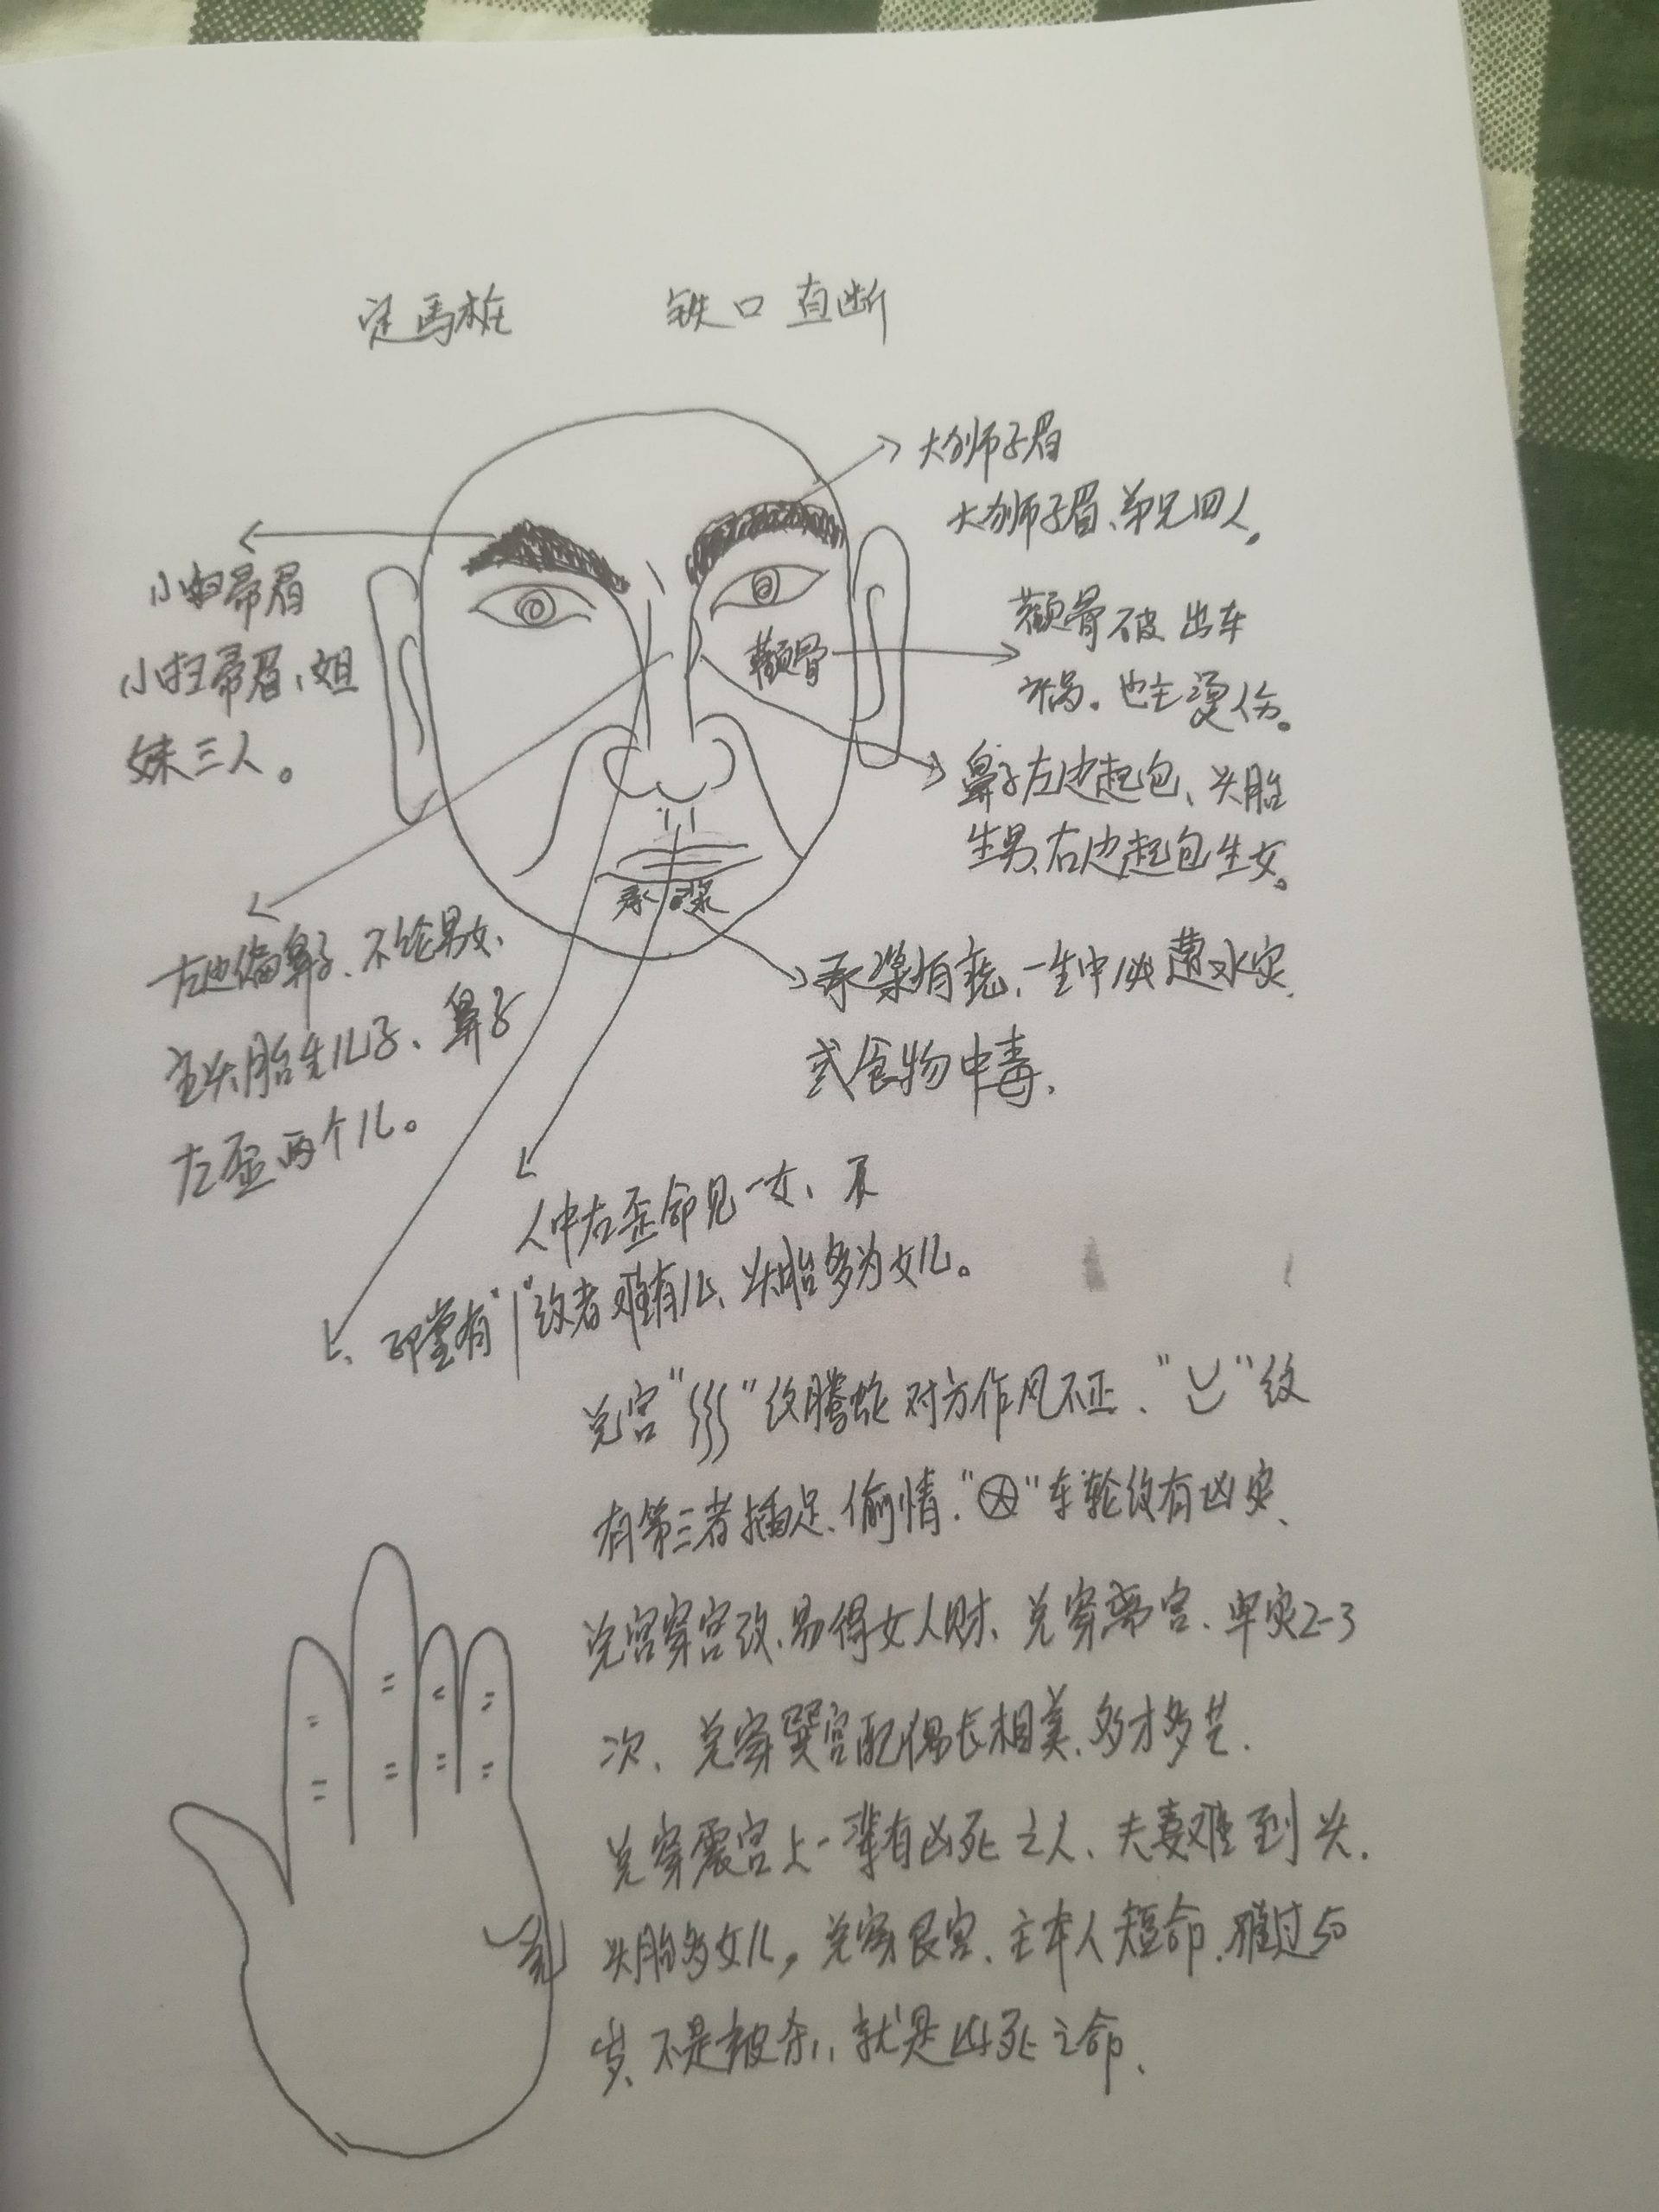 定马桩 铁口直断
大狮子眉
大狮子眉、弟兄四人。
小扫帚眉
小扫帚眉、姐
妹三人。
颧骨
颧骨不破 出车
祸。也主烫伤。
鼻子左边起包、头胎
生男、右边起包生女。
承浆
左边偏鼻子、不论男女、
主头胎生儿子、鼻子
左歪两个儿。
承浆有痣、一生中必遭水灾
或食物中毒、
人中右歪命见一女、
印堂有"|"纹者难有儿、头胎多为女儿。
兑宫"〣"纹腾蛇 对方作风不正、"凵"纹
有第三者插足、偷情."⊗"车轮纹有凶灾、
兑宫穿宫纹、易得女人财、兑穿离宫、牢灾2-3
次、兑穿巽宫配偶长相美、多才多艺.
兑穿震宫上一辈有凶死之人、夫妻难到头.
头胎多女儿，兑穿艮宫、主本人短命、难过50
岁、不是被杀、就是凶死之命、
兑